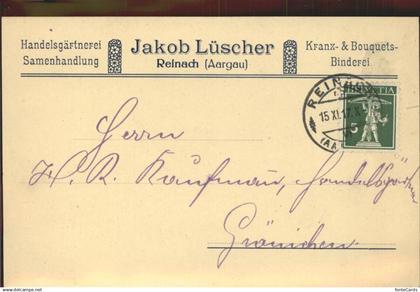 Handelsgärtnerei
Samenhandlung
Jakob Lüscher
Reinach (Aargau)
Kranx- & Bouquets-
Binderei
HELVETIA
5
REINACH
15.XI.17.X
(AA
Herrn
H. R. Kaufmann, Handelsgärtner
Gränichen.